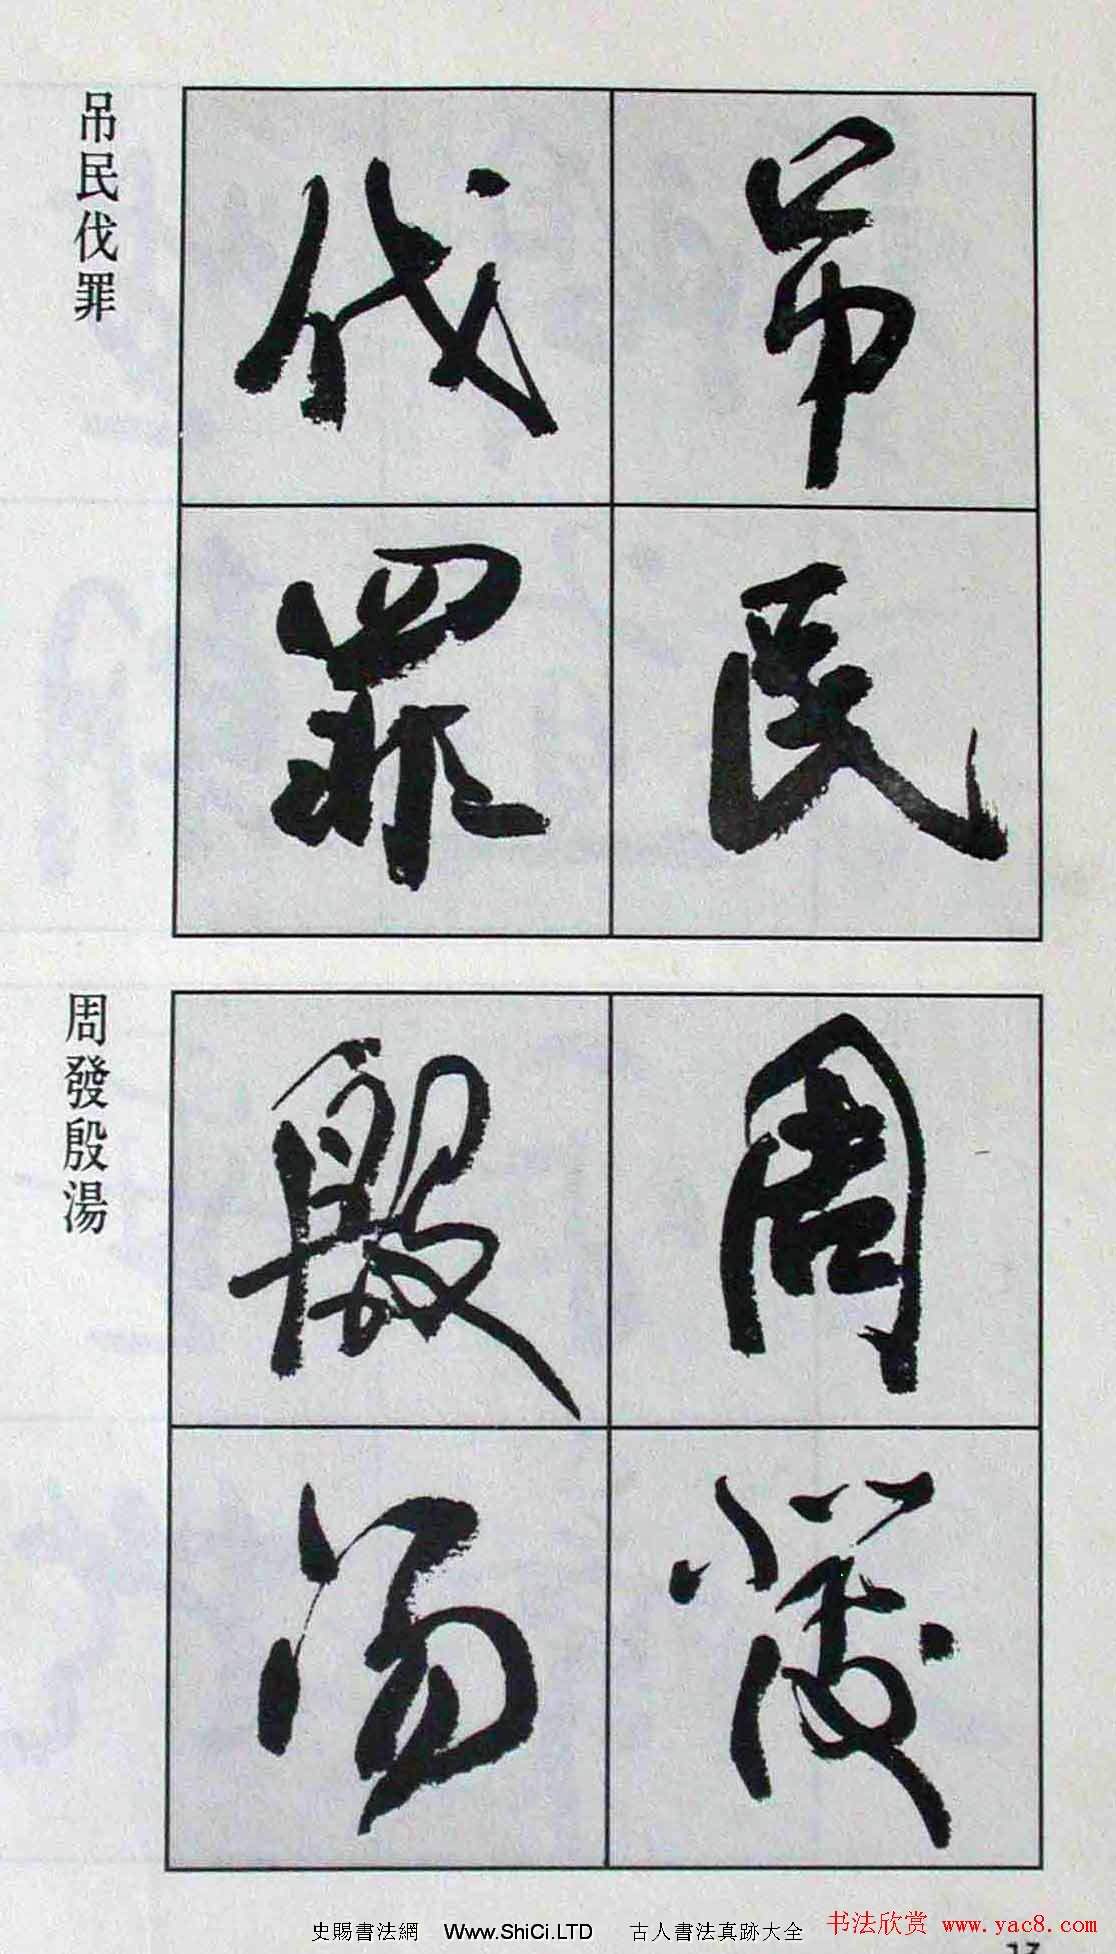 吊民
伐罪
吊民伐罪
周發
殷湯
周發殷湯
史賜書法網 Www.ShiCi.LTD 古人書法真跡大全
书法欣赏 www.yac8.com